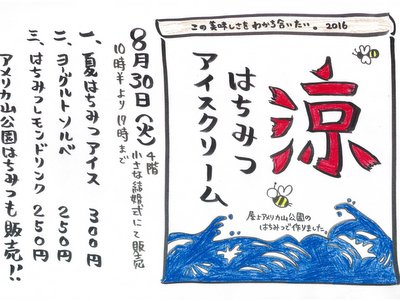 この美味しさをわかち合いたい。2016
涼
はちみつ
アイスクリーム
屋上アメリカ山公園の
はちみつで作りました。
8月30日(火)
10時半より17時まで
4階
小さな結婚式にて販売
一、夏はちみつアイス 300円
二、ヨーグルトソルベ 250円
三、はちみつレモンドリンク 250円
アメリカ山公園はちみつも販売!!